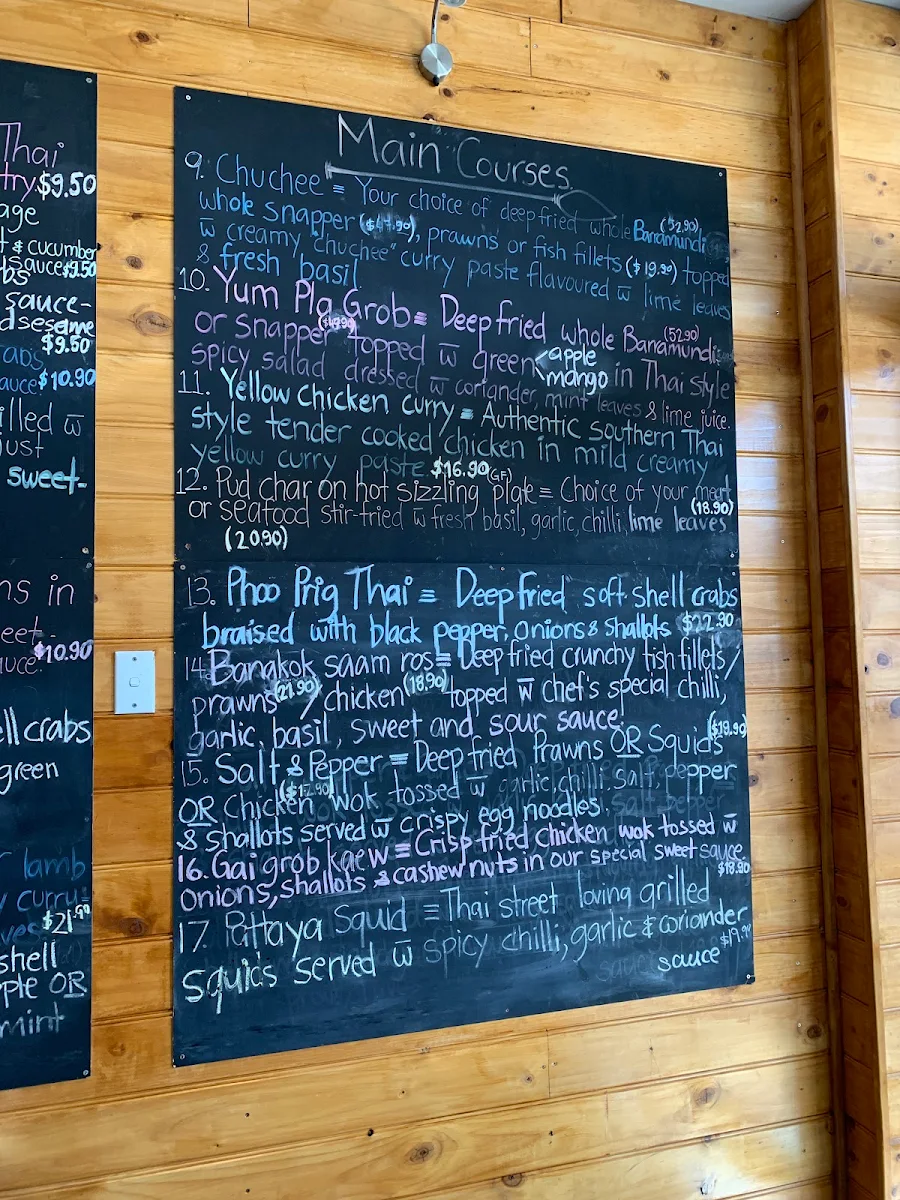 Thai
try. $9.50
age
t & cucumber
sauce $9.50
bs
sauce-
d sesame
$9.50
abs
auce $10.90
illed w̄
just
sweet-
ns in
eet-
uce. $10.90
ell crabs
green
r lamb
y curry
ves $21.90
shell
ple OR
mint
Main Courses
9. Chuchee = Your choice of deep fried whole Barramundi (52.90)
whole snapper ($47.90), prawns or fish fillets ($19.90) topped
w̄ creamy "chuchee" curry paste flavoured w̄ lime leaves
& fresh basil
10. Yum Pla Grob = Deep fried whole Barramundi (52.90)
or snapper topped w̄ green < apple mango in Thai style
spicy salad dressed w̄ coriander, mint leaves & lime juice.
11. Yellow Chicken curry = Authentic southern Thai
style tender cooked chicken in mild creamy
yellow curry paste $16.90 (GF)
12. Pud char on hot sizzling plate = Choice of your meat (18.90)
or seafood stir-fried w̄ fresh basil, garlic, chilli, lime leaves
(20.90)
13. Phoo Prig Thai = Deep fried soft shell crabs
braised with black pepper, onions & shallots $22.90
14. Bangkok saam ros = Deep fried crunchy fish fillets/
prawns (21.90) / chicken (18.90) topped w̄ chef's special chilli,
garlic, basil, sweet and sour sauce.
15. Salt & Pepper = Deep fried Prawns OR Squids ($19.90)
OR Chicken ($17.90) wok tossed w̄ garlic, chilli, salt, pepper
& shallots served w̄ crispy egg noodles.
16. Gai grob kaew = Crisp fried chicken wok tossed w̄
onions, shallots & cashew nuts in our special sweet sauce. $18.90
17. Pattaya Squid = Thai street loving grilled
squids served w̄ spicy chilli, garlic & coriander
sauce $19.90